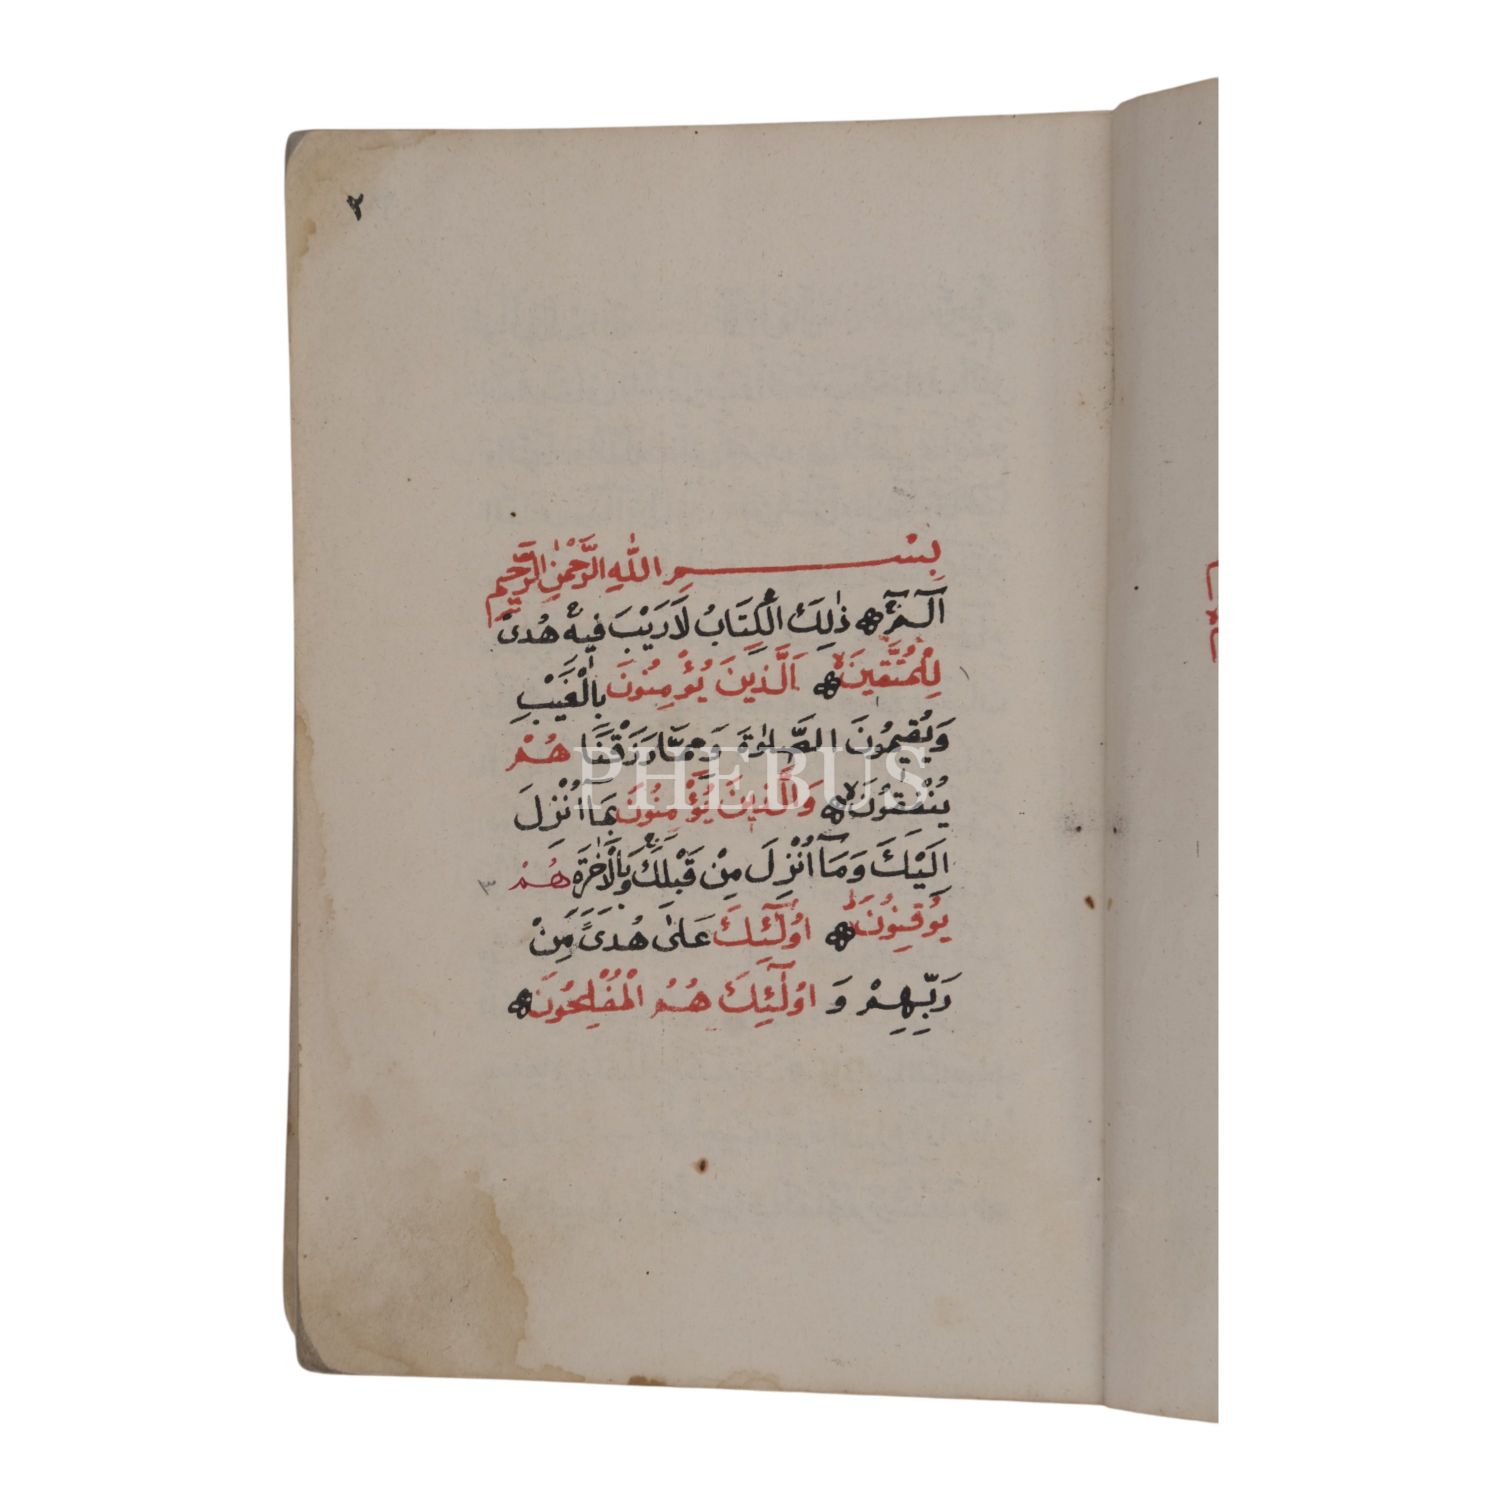 ٢
بِسْمِ اللّٰهِ الرَّحْمٰنِ الرَّحِيمِ
الٓمٓ ذٰلِكَ الْكِتَابُ لَا رَيْبَ فِيهِ هُدًى
لِلْمُتَّقِينَ اَلَّذِينَ يُؤْمِنُونَ بِالْغَيْبِ
وَيُقِيمُونَ الصَّلٰوةَ وَمِمَّا رَزَقْنَا هُمْ
يُنْفِقُونَ وَالَّذِينَ يُؤْمِنُونَ بِمَآ اُنْزِلَ
اِلَيْكَ وَمَآ اُنْزِلَ مِنْ قَبْلِكَ وَبِالْاٰخِرَةِ هُمْ
٣
يُوقِنُونَ اُولٰٓئِكَ عَلٰى هُدًى مِنْ
رَبِّهِمْ وَ اُولٰٓئِكَ هُمُ الْمُفْلِحُونَ
PHEBUS